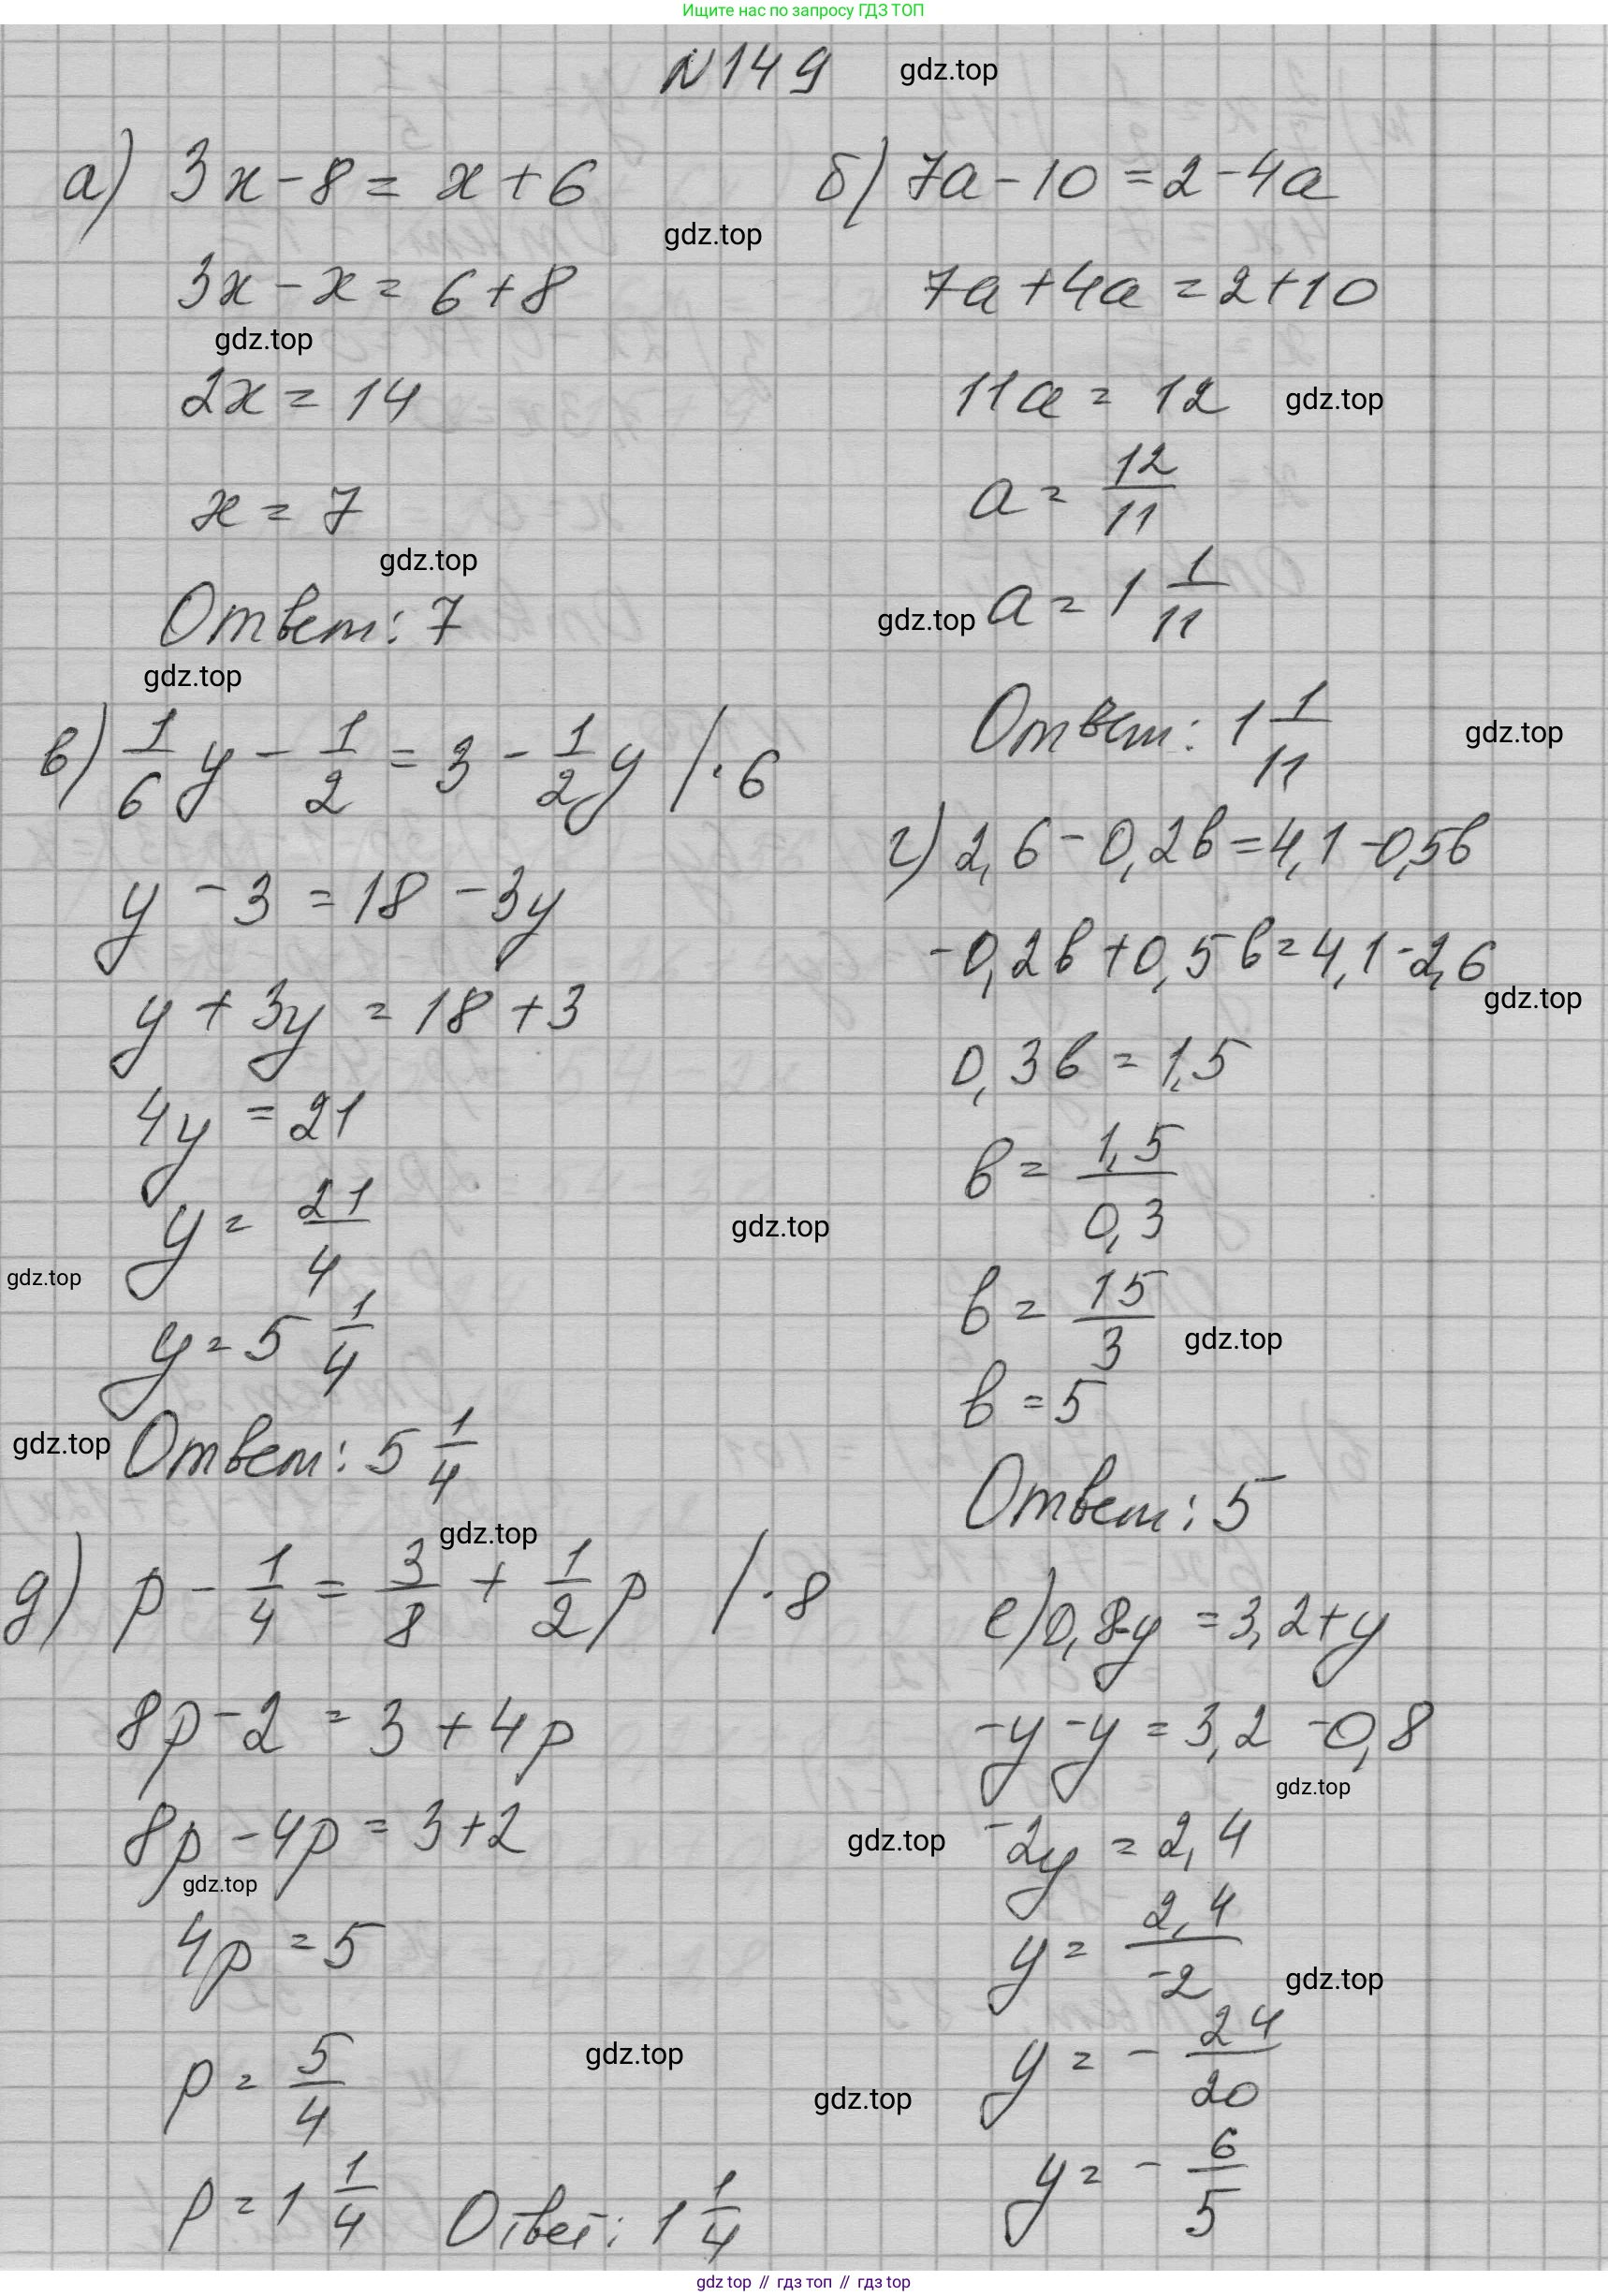 Ищите нас по запросу ГДЗ ТОП
N149
gdz.top
а) 3x - 8 = x + 6
gdz.top
3x - x = 6 + 8
gdz.top
2x = 14
x = 7
gdz.top
Ответ: 7
gdz.top
б) 7a - 10 = 2 - 4a
7a + 4a = 2 + 10
11a = 12
gdz.top
a = 12/11
gdz.top
a = 1 1/11
Ответ: 1 1/11
gdz.top
в) 1/6 y - 1/2 = 3 - 1/2 y /·6
y - 3 = 18 - 3y
y + 3y = 18 + 3
4y = 21
y = 21/4
gdz.top
gdz.top
y = 5 1/4
gdz.top
Ответ: 5 1/4
г) 2,6 - 0,2в = 4,1 - 0,5в
-0,2в + 0,5в = 4,1 - 2,6
gdz.top
0,3в = 1,5
в = 1,5/0,3
в = 15/3
gdz.top
в = 5
Ответ: 5
gdz.top
д) p - 1/4 = 3/8 + 1/2 p /·8
8p - 2 = 3 + 4p
8p - 4p = 3 + 2
gdz.top
4p = 5
p = 5/4
gdz.top
p = 1 1/4
Ответ: 1 1/4
е) 0,8-y = 3,2 + y
-y - y = 3,2 - 0,8
gdz.top
gdz.top
-2y = 2,4
y = 2,4/-2
gdz.top
y = - 24/20
gdz.top
y = - 6/5
gdz top // гдз топ // gdz.top